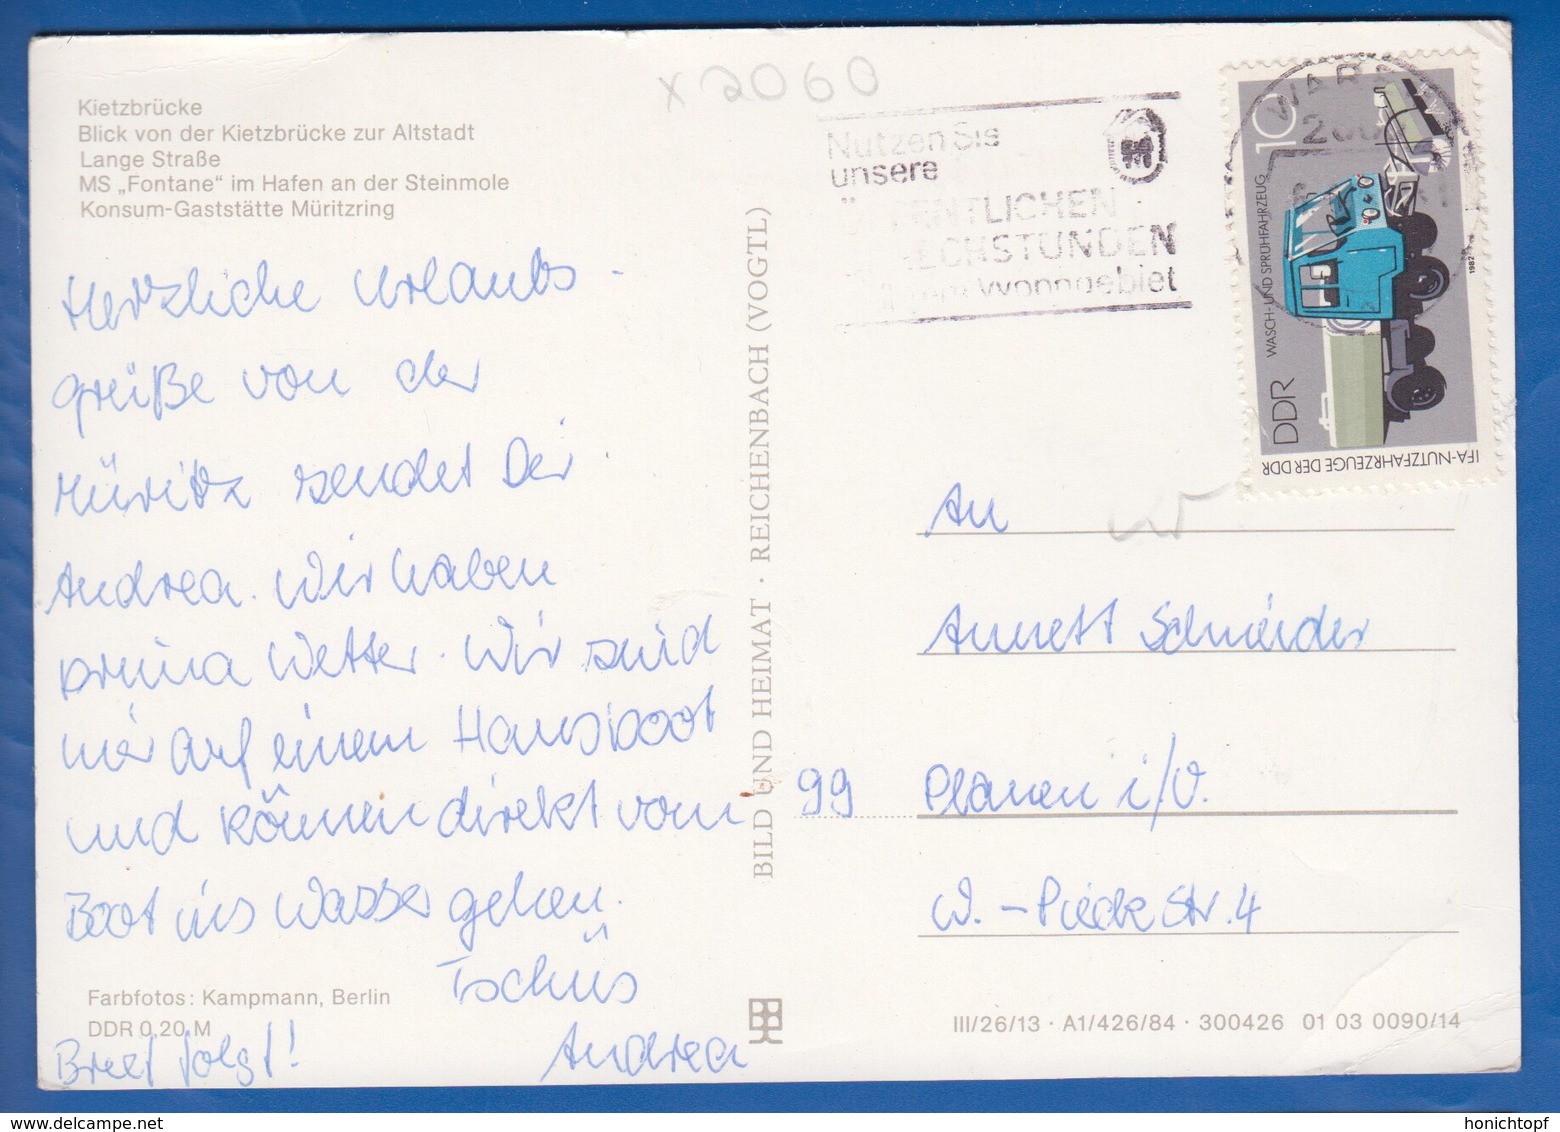 Kietzbrücke
Blick von der Kietzbrücke zur Altstadt
Lange Straße
MS „Fontane“ im Hafen an der Steinmole
Konsum-Gaststätte Müritzring
Herzliche Urlaubs-
grüße von der
Müritz sendet Dir
Andrea. Wir haben
prima Wetter. Wir sind
hier auf einem Hausboot
und können direkt vom
Boot ins Wasser gehen.
Tschüs
Andrea
Brief folgt!
Farbfotos: Kampmann, Berlin
DDR 0,20 M
BILD UND HEIMAT · REICHENBACH (VOGTL)
x 2060
Nutzen Sie
unsere
ENTLICHEN
ECHSTUNDEN
Wohngebiet
WAR
10
WASCH- UND SPRÜHFAHRZEUG
DDR
IFA-NUTZFAHRZEUGE DER DDR
1982
An
Annett Schneider
99 Plauen i/V.
W.-Pieck Str. 4
III/26/13 · A1/426/84 · 300426 01 03 0090/14
honichtopf